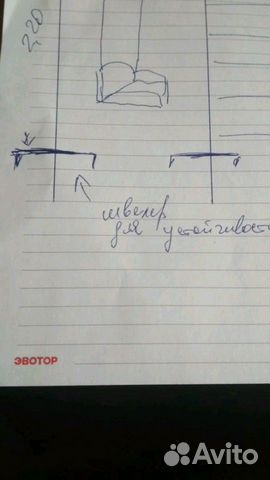 2,20
швелер
для устойчивост
ЭВОТОР
Avito